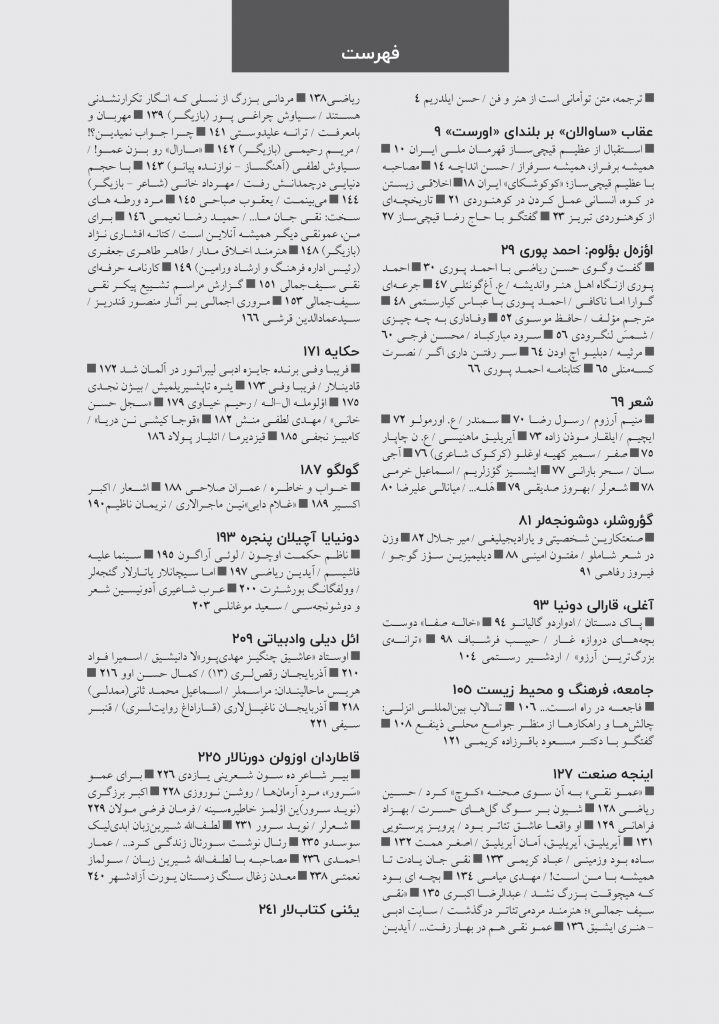 فهرست
■ ترجمه، متن توأمانی است از هنر و فن / حسن ایلدریم ۴
عقاب «ساوالان» بر بلندای «اورست» ۹
■ استقبال از عظیم قیچی‌ساز قهرمان ملی ایران ۱۰ ■
همیشه برفراز، همیشه سرفراز / حسن انداچه ۱۴ ■ مصاحبه
با عظیم قیچی‌ساز؛ «کوکوشکای» ایران ۱۸ ■ اخلاقی زیستن
در کوه، انسانی عمل کردن در کوهنوردی ۲۱ ■ تاریخچه‌ای
از کوهنوردی تبریز ۲۳ ■ گفتگو با حاج رضا قیچی‌ساز ۲۷
اؤزه‌ل بؤلوم: احمد پوری ۲۹
■ گفت وگوی حسن ریاضی با احمد پوری ۳۰ ■ احمد
پوری ازنگاه اهل هنر واندیشه / ع. آغ‌گونئلی ۴۷ ■ جرعه‌ای
گوارا اما ناکافی / احمد پوری با عباس کیارستمی ۴۸ ■
مترجمِ مؤلف / حافظ موسوی ۵۲ ■ وفاداری به چه چیزی
/ شمس لنگرودی ۵۶ ■ سرود مبارکباد / محسن فرجی ۶۰
■ مرثیه / دبلیو اچ اودن ۶۴ ■ سر رفتن داری اگر / نصرت
کسمه‌نلی ۶۵ ■ کتابنامه احمد پوری ۶۶
شعر ۶۹
■ منیم آرزوم / رسول رضا ۷۰ ■ سمندر / ع. اورمولو ۷۲ ■
ایچیم / ایلقار موذن زاده ۷۳ ■ آیریلیق ماهنیسی / ع. ن چاپار
۷۵ ■ صفر / سمیر کهیه اوغلو (کرکوک شاعری) ۷۶ ■ آجی
سان / سحر بارانی ۷۷ ■ ایشسیز گؤزلریم / اسماعیل خرمی
۷۸ ■ شعرلر / بهروز صدیقی ۷۹ ■ هَله... / میانالی علیرضا ۸۰
گؤروشلر، دوشونجه‌لر ۸۱
■ صنعتکارین شخصیتی و یارادیجیلیغی / میر جلال ۸۲ ■ وزن
در شعر شاملو / مفتون امینی ۸۸ ■ دیلیمیزین سؤز گوجو /
فیروز رفاهی ۹۱
آغلی، قارالی دونیا ۹۳
■ پاک دستان / ادواردو گالیانو ۹۴ ■ «خاله صفا» دوست
بچه‌های دروازه غار / حبیب فرشباف ۹۸ ■ «ترانه‌ی
بزرگ‌ترین آرزو» / اردشیر رستمی ۱۰۴
جامعه، فرهنگ و محیط زیست ۱۰۵
■ فاجعه در راه است... ۱۰۶ ■ تالاب بین‌المللی انزلی:
چالش‌ها و راهکارها از منظر جوامع محلی ذینفع ۱۰۸ ■
گفتگو با دکتر مسعود باقرزاده کریمی ۱۲۱
اینجه صنعت ۱۲۷
■ «عمو نقی» به آن سوی صحنه «کوچ» کرد / حسین
ریاضی ۱۲۸ ■ شیون بر سوگ گل‌های حسرت / بهزاد
فراهانی ۱۲۹ ■ او واقعا عاشق تئاتر بود / پرویز پرستویی
۱۳۱ ■ آیریلیق، آیریلیق، آمان آیریلیق / اصغر همت ۱۳۲ ■
ساده بود وزمینی / عباد کریمی ۱۳۳ ■ نقی جان یادت تا
همیشه با من است! / مهدی میامی ۱۳۴ ■ بچه ای بود
که هیچوقت بزرگ نشد / عبدالرضا اکبری ۱۳۵ ■ «نقی
سیف جمالی»؛ هنرمند مردمی‌تئاتر درگذشت / سایت ادبی
- هنری ایشیق ۱۳۶ ■ عمو نقی هم در بهار رفت... / آیدین
ریاضی ۱۳۸ ■ مردانی بزرگ از نسلی که انگار تکرارنشدنی
هستند / سیاوش چراغی پور (بازیگر) ۱۳۹ ■ مهربان و
بامعرفت / ترانه علیدوستی ۱۴۱ ■ چرا جواب نمیدین؟!
/ مریم رحیمی (بازیگر) ۱۴۲ ■ «مارال» رو بزن عمو! /
سیاوش لطفی (آهنگساز - نوازنده پیانو) ۱۴۳ ■ با حجم
دنیایی درچمدانش رفت / مهرداد خانی (شاعر - بازیگر)
۱۴۴ ■ می‌بینمت / یعقوب صباحی ۱۴۵ ■ مرد ورطه های
سخت: نقی جان ما... / حمید رضا نعیمی ۱۴۶ ■ برای
من، عمونقی دیگر همیشه آنلاین است / کتانه افشاری نژاد
(بازیگر) ۱۴۸ ■ هنرمند اخلاق مدار / طاهر طاهری جعفری
(رئیس اداره فرهنگ و ارشاد ورامین) ۱۴۹ ■ کارنامه حرفه‌ای
نقی سیف‌جمالی ۱۵۱ ■ گزارش مراسم تشییع پیکر نقی
سیف‌جمالی ۱۵۳ ■ مروری اجمالی بر آثار منصور قندریز /
سیدعمادالدین قرشی ۱۶۶
حکایه ۱۷۱
■ فریبا وفی برنده جایزه ادبی لیبراتور در آلمان شد ۱۷۲ ■
قادینلار / فریبا وفی ۱۷۳ ■ یئره تاپشیریلمیش / بیژن نجدی
۱۷۵ ■ اؤلومله ال-اله / رحیم خیاوی ۱۷۹ ■ «سجل حسن
خانی» / مهدی لطفی منش ۱۸۲ ■ «قوجا کیشی نن دریا» /
کامبیز نجفی ۱۸۵ ■ قیزدیرما / ائلیار پولاد ۱۸۶
گولگو ۱۸۷
■ خواب و خاطره / عمران صلاحی ۱۸۸ ■ اشعار / اکبر
اکسیر ۱۸۹ ■ «غلام دایی»نین ماجرالاری / نریمان ناظیم ۱۹۰
دونیایا آچیلان پنجره ۱۹۳
■ ناظم حکمت اوچون / لوئی آراگون ۱۹۵ ■ سینما علیه
فاشیسم / آیدین ریاضی ۱۹۷ ■ اما سیچانلار یاتارلار گئجه‌لر
/ وولفگانگ بورشئرت ۲۰۰ ■ عرب شاعیری آدونیسین شعر
و دوشونجه‌سی / سعید موغانلی ۲۰۳
ائل دیلی وادبیاتی ۲۰۹
■ اوستاد «عاشیق چنگیز مهدی‌پور»لا دانیشیق / اسمیرا فواد
۲۱۰ ■ آذربایجان رقص‌لری (۱۳) / کمال حسن اوو ۲۱۶ ■
هریس ماحالیندان: مراسملر / اسماعیل محمد ثانی(ممدلی)
۲۱۸ ■ آذربایجان ناغیل‌لاری (قاراداغ روایت‌لری) / قنبر
سیفی ۲۲۱
قاطاردان اوزولن دورنالار ۲۲۵
■ بیر شاعر ده سون شعرینی یازدی ۲۲۶ ■ برای عمو
«سَرور»، مردِ آرمان‌ها / روشن نوروزی ۲۲۸ ■ اکبر برزگری
(نوید سرور)این اؤلمز خاطیره‌سینه / فرمان فرضی مولان ۲۲۹
■ شعرلر / نوید سرور ۲۳۱ ■ لطف‌الله شیرین‌زبان ابدی‌لیک
سوسدو ۲۳۵ ■ رئال نوشت سورئال زندگی کرد... / عمار
احمدی ۲۳۶ ■ مصاحبه با لطف‌الله شیرین زبان / سولماز
نعمتی ۲۳۸ ■ معدن زغال سنگ زمستان یورت آزادشهر ۲۴۰
یئنی کتاب‌لار ۲۴۱